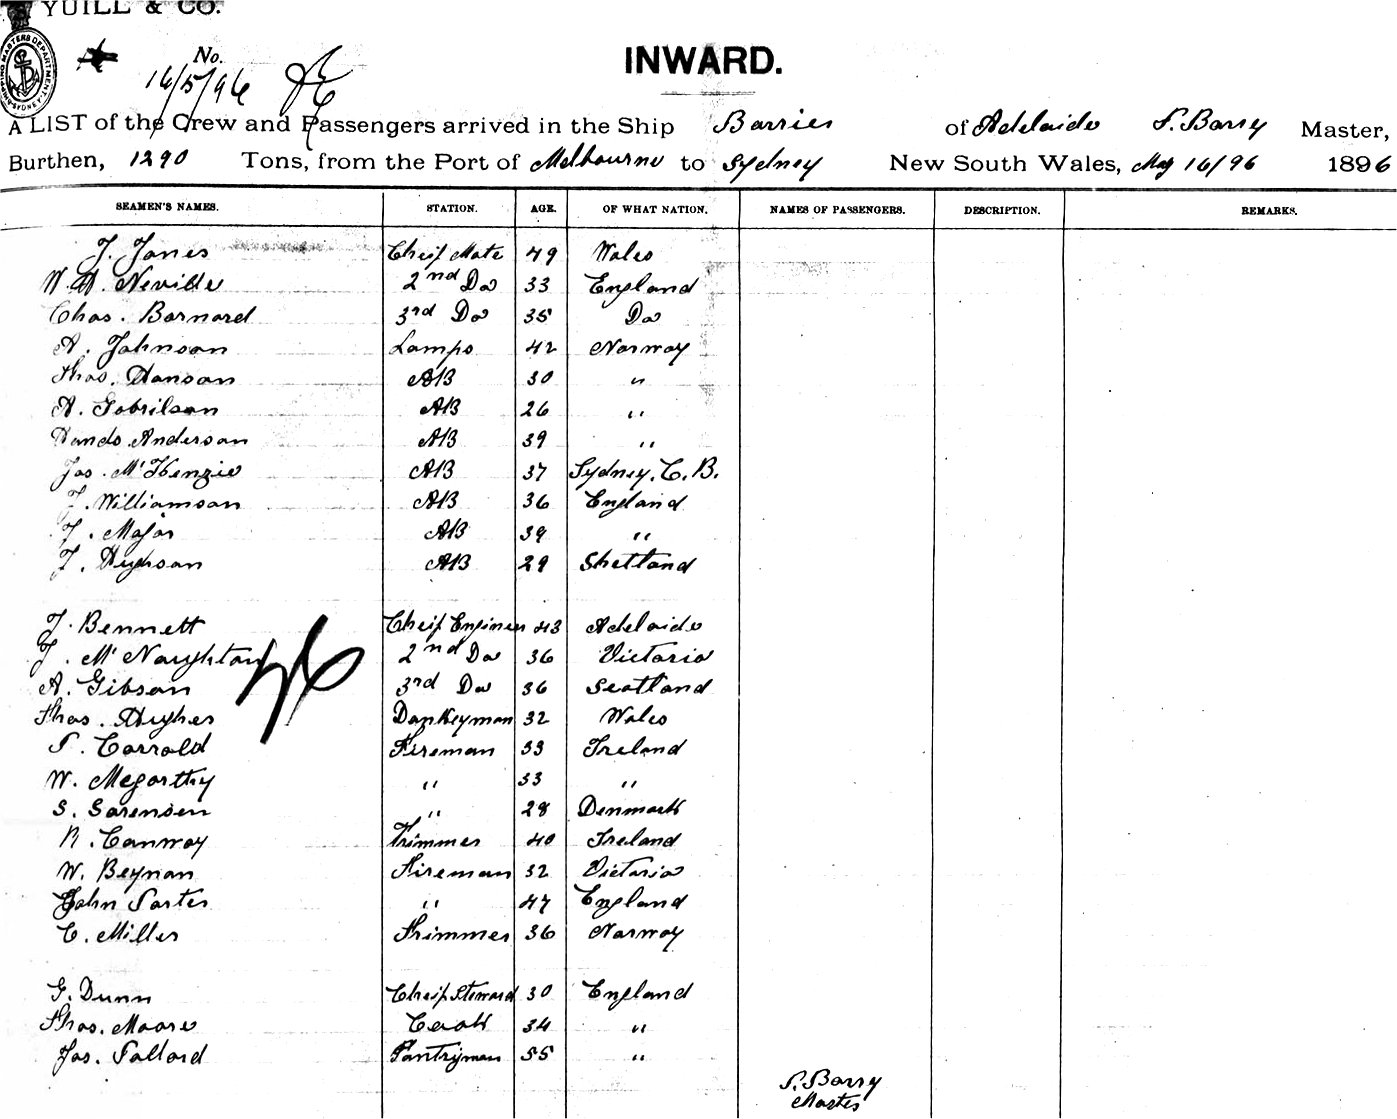 YUILL & CO.
SHIPPING MASTERS DEPARTMENT SYDNEY
No.
16/5/96
INWARD.
A LIST of the Crew and Passengers arrived in the Ship Barrier of Adelaide P. Barry Master,
Burthen, 1290 Tons, from the Port of Melbourne to Sydney New South Wales, May 16/96 1896
SEAMEN'S NAMES. STATION. AGE. OF WHAT NATION. NAMES OF PASSENGERS. DESCRIPTION. REMARKS.
J. Jones Cheif Mate 49 Wales
W. Neville 2nd Do 33 England
Chas. Barnard 3rd Do 35 Do
A. Johnson Lamps 42 Norway
Thos. Hanson AB 30 "
A. Gabrilson AB 26 "
Hands Anderson AB 39 "
Jas. McKenzie AB 37 Sydney. C. B.
J. Williamson AB 36 England
J. Major AB 39 "
J. Hughson AB 29 Shetland
J. Bennett Cheif Engineer 43 Adelaide
J. McNaughton 2nd Do 36 Victoria
A. Gibson 3rd Do 36 Scotland
Thos. Hughes Donkeyman 32 Wales
P. Carrold Fireman 33 Ireland
W. Megarthy " 33 "
S. Sorensen " 28 Denmark
R. Conway Trimmer 40 Ireland
W. Beynon Fireman 32 Victoria
John Porter " 47 England
C. Miller Trimmer 36 Norway
G. Dunn Cheif Steward 30 England
Thos. Moore Cook 34 "
Jas. Pollard Pantryman 55 "
P. Barry
Master